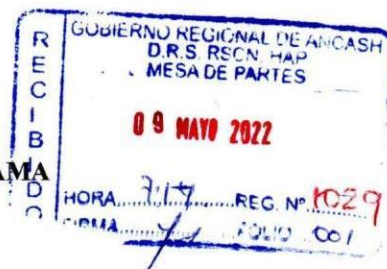 RECIBIDO
GOBIERNO REGIONAL DE ANCASH
D.R.S. RSCN. HAP
MESA DE PARTES
09 MAYO 2022
AMA
HORA REG. Nº 1029
FIRMA FOLIO 001